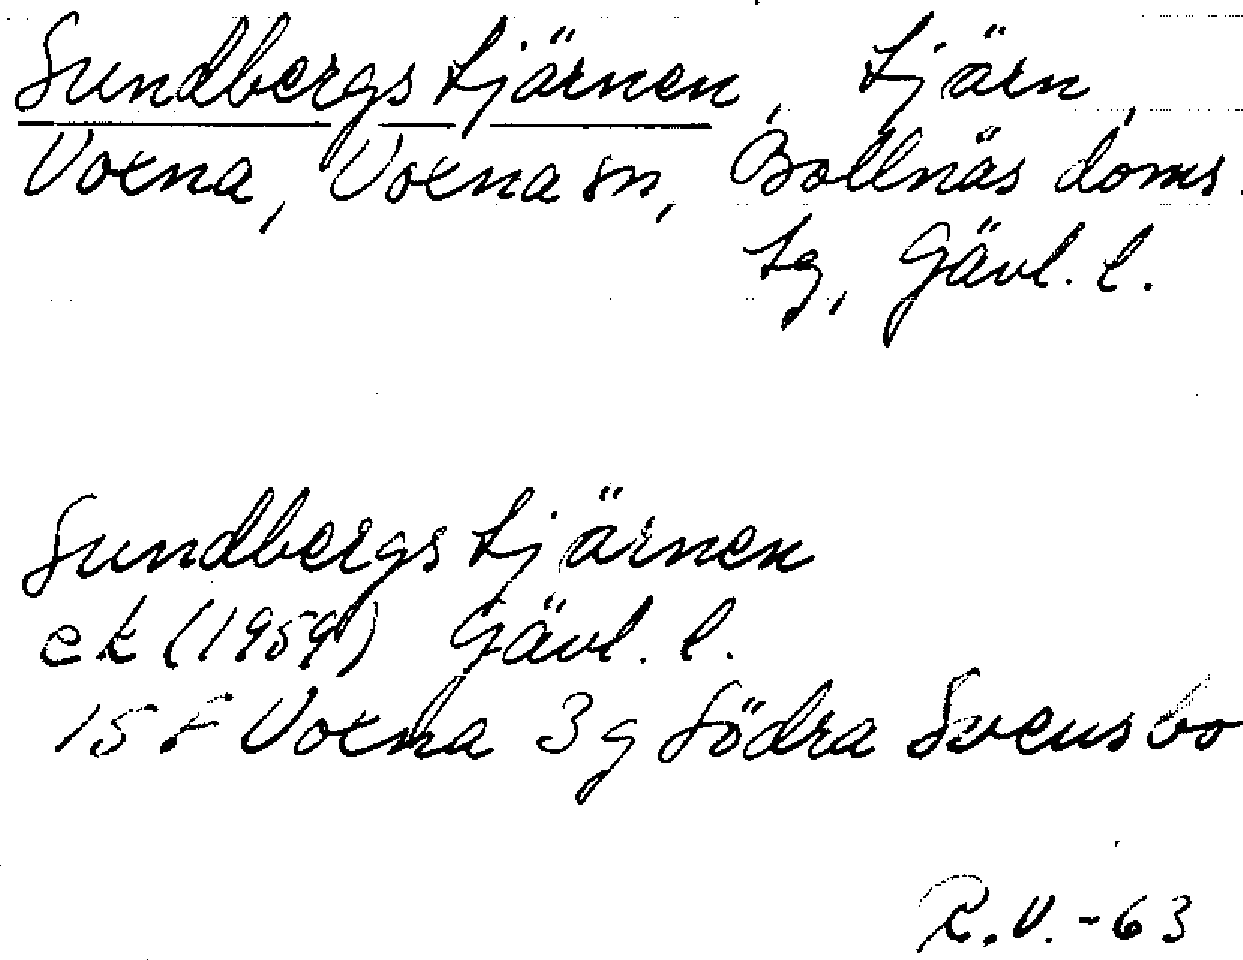 Sundbergstjärnen, tjärn,
Voxna, Voxna sn, Bollnäs doms.
tg, Gävl. l.
Sundbergstjärnen
ek (1959) Gävl. l.
15 F Voxna 3g Södra Svensbo
R.V.-63